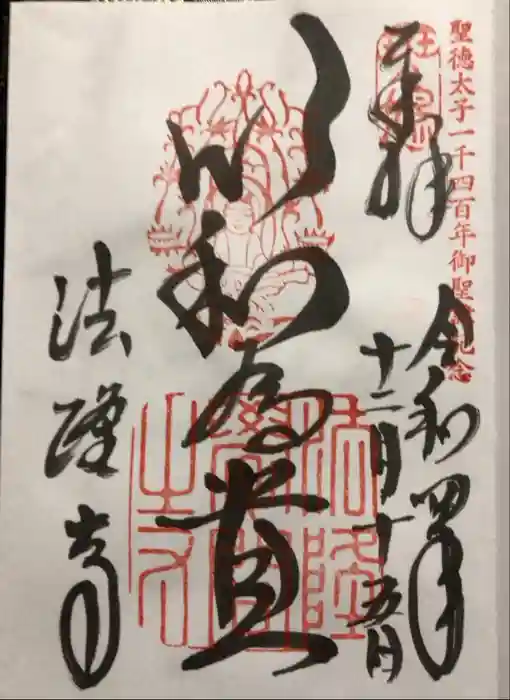 聖徳太子一千四百年御聖諱記念
奉拝
令和四年
十二月十五日
以和為貴
法隆寺